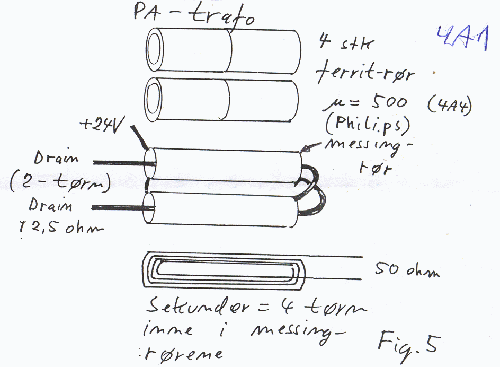 PA-trafo
4A1
4 stk
ferrit-rør
µ = 500 (4A4)
(Philips)
messing-
rør
+24V
Drain
(2-tørn)
Drain
12,5 ohm
50 ohm
Sekundær = 4 tørn
inne i messing-
rørene
Fig. 5